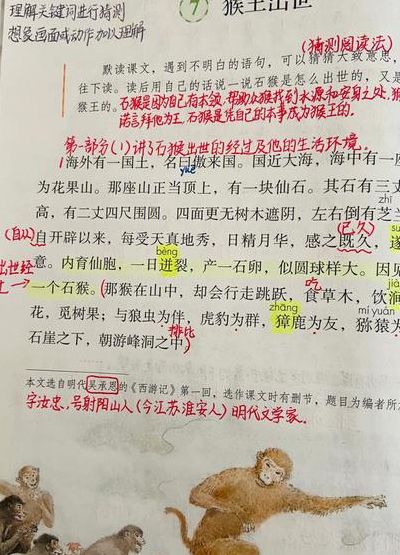 理解关键词进行猜测
想象画面或动作加以理解
7 猴王出世
(猜测阅读法)
默读课文，遇到不明白的语句，可以猜猜大致意思，
往下读。读后用自己的话说一说石猴是怎么出世的，又是
猴王的。石猴是因为自己有本领,帮助众猴找到水源和安身之处,猴
诺言拜他为王,石猴是凭自己的本事成为猴王的。
第一部分(1)讲了石猴出世的经过及他的生活环境。
1海外有一国土，名曰傲来国。国近大海，海中有一座
yuē
为花果山。那座山正当顶上，有一块仙石。其石有三丈
zhī
高，有二丈四尺围圆。四面更无树木遮阴，左右倒有芝兰
(自从) (已久)
自开辟以来，每受天真地秀，日精月华，感之既久，遂
bèng
出世经 意。内育仙胞，一日迸裂，产一石卵，似圆球样大。因见
过→一个石猴。(那猴在山中，却会行走跳跃，食草木，饮涧
吃
zhāng mí yuán
花，觅树果；与狼虫为伴，虎豹为群，獐鹿为友，猕猿为
石崖之下，朝游峰洞之中)
排比
本文选自明代吴承恩的《西游记》第一回，选作课文时有删节，题目为编者所
字汝忠,号射阳山人(今江苏淮安人)明代文学家.